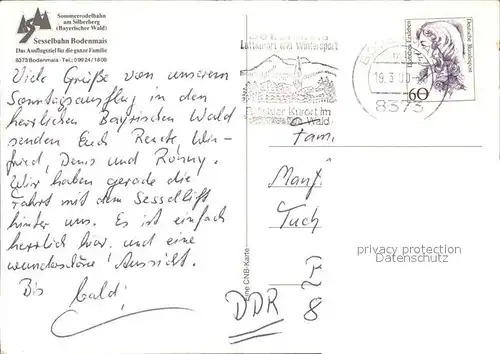 Sommerrodelbahn
am Silberberg
(Bayerischer Wald)
Sesselbahn Bodenmais
Das Ausflugsziel für die ganze Familie
8373 Bodenmais · Tel.: 09924/1806
Viele Grüße von unserem
Sonntagsausflug in den
herrlichen Bayrischen Wald
senden Euch Renate, Win-
fried, Denis und Ronny.
Wir haben gerade die
Fahrt mit dem Sessellift
hinter uns. Es ist einfach
herrlich hier und eine
wunderschöne Aussicht.
Bis bald!
Luftkurort und Wintersport
Kurort im
Wald
19.3.90
8373
Deutsche Bundespost
60
Fam.
Manf
Tuch
DDR
8
Eine CNB-Karte
privacy protection
Datenschutz